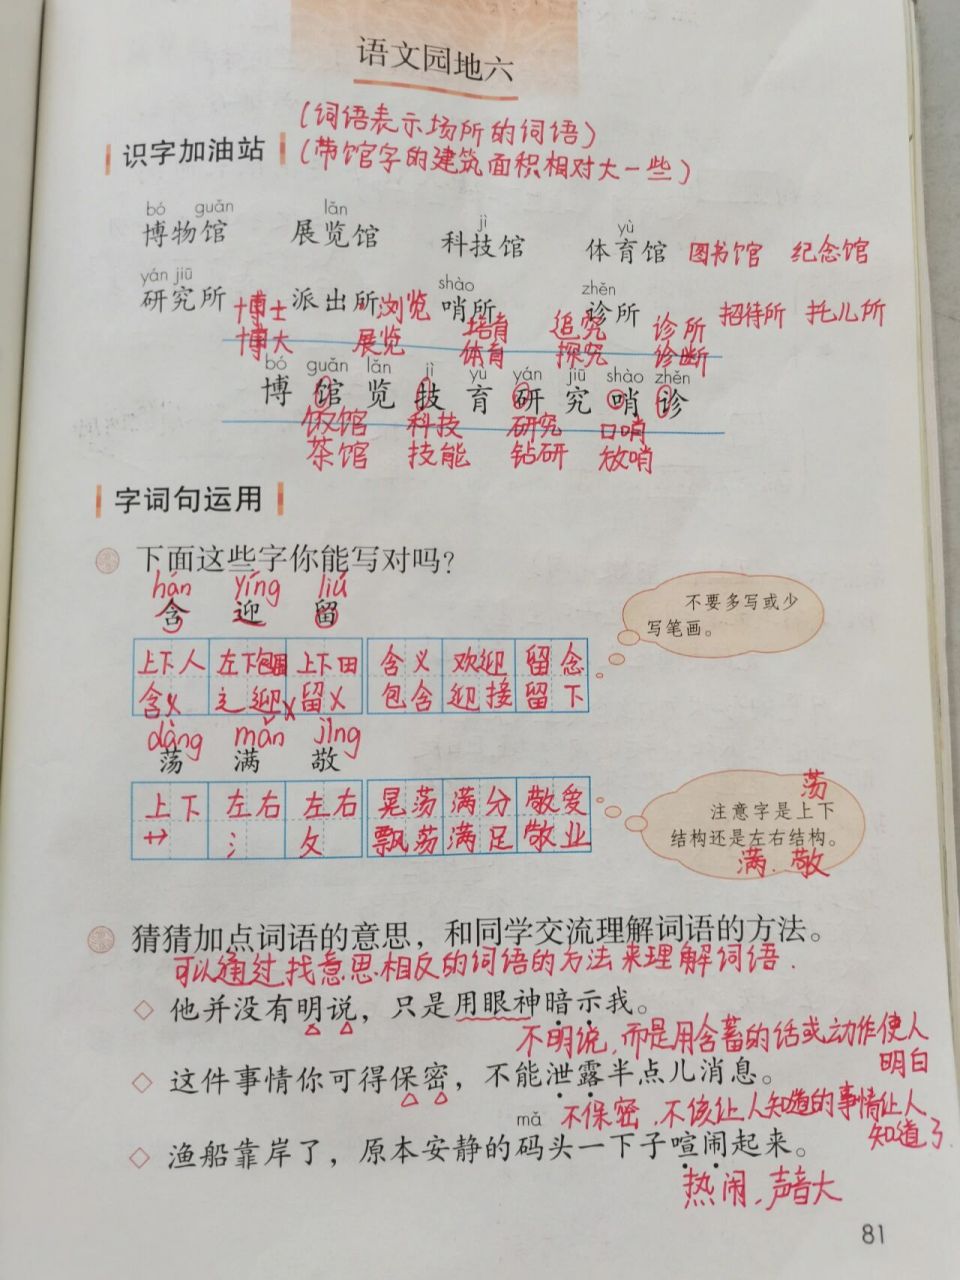 语文园地六
(词语表示场所的词语)
识字加油站
(带馆字的建筑面积相对大一些)
bó guǎn lǎn jì yù
博物馆 展览馆 科技馆 体育馆 图书馆 纪念馆
yán jiū shào zhěn
研究所 派出所 哨所 诊所 招待所 托儿所
博士 浏览 培育 追究 诊所
博大 展览 体育 探究 诊断
bó guǎn lǎn jì yù yán jiū shào zhěn
博 馆 览 技 育 研 究 哨 诊
饭馆 科技 研究 口哨
茶馆 技能 钻研 放哨
字词句运用
下面这些字你能写对吗?
hán yíng liú
含 迎 留
不要多写或少
写笔画。
上下人 左下包围 上下田 含义 欢迎 留念
含 辶迎 留 包含 迎接 留下
dàng mǎn jìng
荡 满 敬
上下 左右 左右 晃荡 满分 敬爱
氵 攵 飘荡 满足 敬业
荡
注意字是上下
结构还是左右结构。
满、敬
猜猜加点词语的意思，和同学交流理解词语的方法。
可以通过找意思相反的词语的方法来理解词语.
◇ 他并没有明说，只是用眼神暗示我。
不明说,而是用含蓄的话或动作使人
明白
◇ 这件事情你可得保密，不能泄露半点儿消息。
不保密,不该让人知道的事情让人
知道了
mǎ
◇ 渔船靠岸了，原本安静的码头一下子喧闹起来。
热闹,声音大
81